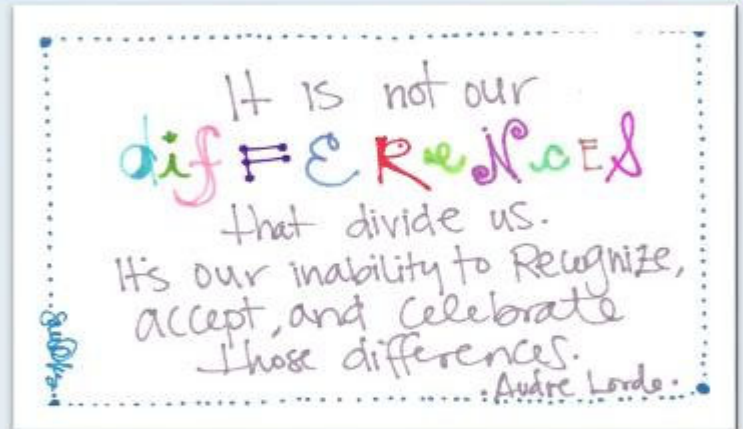 It is not our
difFEReNcES
that divide us.
It's our inability to Recognize,
accept, and Celebrate
those differences.
. Audre Lorde .